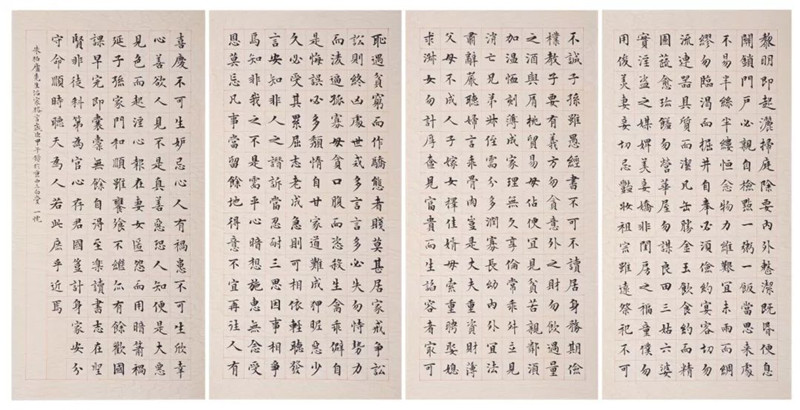 黎明即起灑掃庭除要內外整潔既昏便息
關鎖門戶必親自檢點一粥一飯當思來處
不易半絲半縷恒念物力維艱宜未雨而綢
繆勿臨渴而掘井自奉必須儉約宴客切勿
流連器具質而潔瓦缶勝金玉飲食約而精
園蔬愈珍饈勿營華屋勿謀良田三姑六婆
實淫盜之媒婢美妾嬌非閨房之福童僕勿
用俊美妻妾切忌艷妝祖宗雖遠祭祀不可
不誠子孫雖愚經書不可不讀居身務期儉
樸教子要有義方勿貪意外之財勿飲過量
之酒與肩挑貿易毋佔便宜見貧苦親鄰須
加溫恤刻薄成家理無久享倫常乖舛立見
消亡兄弟叔侄需分多潤寡長幼內外宜法
肅辭嚴聽婦言乖骨肉豈是丈夫重資財薄
父母不成人子嫁女擇佳婿毋索重聘娶媳
求淑女勿計厚奩見富貴而生諂容者最可
恥遇貧窮而作驕態者賤莫甚居家戒爭訟
訟則終凶處世戒多言言多必失勿恃勢力
而凌逼孤寡毋貪口腹而恣殺生禽乖僻自
是悔誤必多頹惰自甘家道難成狎暱惡少
久必受其累屈志老成急則可相依輕聽發
言安知非人之譖訴當忍耐三思因事相爭
焉知非我之不是需平心暗想施惠無念受
恩莫忘凡事當留餘地得意不宜再往人有
喜慶不可生妒忌心人有禍患不可生欣幸
心善欲人見不是真善惡恐人知便是大惡
見色而起淫心報在妻女匿怨而用暗箭禍
延子孫家門和順雖饔飧不繼亦有餘歡國
課早完即囊橐無餘自得至樂讀書志在聖
賢非徒科第為官心存君國豈計身家安分
守命順時聽天為人若此庶乎近焉
朱柏廬先生治家格言歲次甲午 堂 一悅